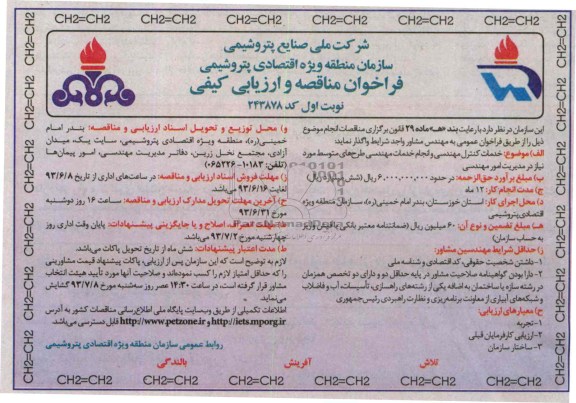 CH2=CH2 CH2=CH2 CH2=CH2 CH2=CH2 CH2=CH2 CH2=CH2 CH2=CH2
شرکت ملی صنایع پتروشیمی
سازمان منطقه ویژه اقتصادی پتروشیمی
فراخوان مناقصه و ارزیابی کیفی
نوبت اول کد ۲۴۳۸۷۸
این سازمان در نظر دارد با رعایت بند «هـ» ماده ۲۹ قانون برگزاری مناقصات انجام موضوع
ذیل را از طریق فراخوان عمومی به مهندس مشاور واجد شرایط واگذار نماید
الف) موضوع: خدمات کنترل مهندسی و انجام خدمات مهندسی طرح‌های متوسط مورد
نیاز در مدیریت امور مهندسی
ب) مبلغ برآورد حق‌الزحمه: در حدود ۶،۰۰۰،۰۰۰،۰۰۰ ریال (شش میلیارد ریال)
ج) مدت انجام کار: ۱۲ ماه
د) محل اجرای کار: استان خوزستان، بندر امام خمینی (ره)، سازمان منطقه ویژه
اقتصادی پتروشیمی
هـ) مبلغ تضمین و نوع آن: ۶۰ میلیون ریال (ضمانتنامه معتبر بانکی یا فیش واریز
به حساب سازمان)
ز) حداقل شرایط مهندسین مشاور:
۱- داشتن شخصیت حقوقی، کد اقتصادی و شناسه ملی
۲- دارا بودن گواهینامه صلاحیت مشاور در پایه حداقل دو و دارای دو تخصص همزمان
در رشته سازه یا ساختمان به اضافه یکی از رشته‌های راهسازی، تأسیسات آب و فاضلاب
و شبکه‌های آبیاری از معاونت برنامه‌ریزی و نظارت راهبردی رئیس‌جمهوری
ح) معیارهای ارزیابی:
۱- تجربه
۲- ارزیابی کارفرمایان قبلی
۳- ساختار سازمان
و) محل توزیع و تحویل اسناد ارزیابی و مناقصه: بندر امام
خمینی (ره)، منطقه ویژه اقتصادی پتروشیمی، سایت یک، میدان
آزادی، مجتمع نخل زرین، دفاتر مدیریت مهندسی، امور پیمان‌ها
(تلفن: ۱۰۱۸۳-۰۶۵۲۲۶)
ز) مهلت فروش اسناد ارزیابی و مناقصه: در ساعت‌های اداری از تاریخ ۹۳/۶/۸
لغایت ۹۳/۶/۱۶ می‌باشد.
ح) آخرین مهلت تحویل مدارک ارزیابی و مناقصه: ساعت ۱۶ روز دوشنبه
مورخ ۹۳/۶/۳۱
ط) مهلت انصراف، اصلاح و یا جایگزینی پیشنهادات: پایان وقت اداری روز
چهارشنبه مورخ ۹۳/۷/۲ می‌باشد.
ظ) مدت اعتبار پیشنهادات: شش ماه از تاریخ تحویل پاکات می‌باشد.
لازم به توضیح است که این سازمان پس از ارزیابی، پاکات پیشنهاد قیمت مشاورینی
را که حداقل امتیاز لازم را کسب نموده‌اند و صلاحیت آنها مورد تأیید هیئت انتخاب
مشاور قرار گرفته است، در ساعت ۱۴:۳۰ عصر روز سه‌شنبه مورخ ۹۳/۷/۸ گشایش
می‌نماید.
اطلاعات تکمیلی از طریق وب‌سایت پایگاه ملی اطلاع‌رسانی مناقصات کشور به آدرس
http://iets.mporg.ir و http://www.petzone.ir قابل دسترسی می‌باشد.
روابط عمومی سازمان منطقه ویژه اقتصادی پتروشیمی
تلاش آفرینش بالندگی
CH2=CH2 CH2=CH2 CH2=CH2 CH2=CH2 CH2=CH2 CH2=CH2 CH2=CH2